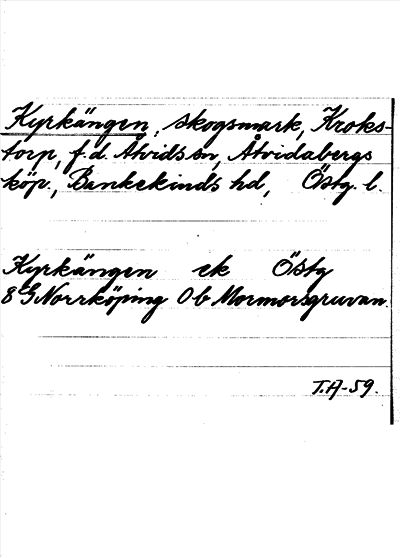 Kyrkängen, skogsmark, Kroks-
torp, f.d. Åtvids sn, Åtvidabergs
köp., Bankekinds hd, Östg. l.
Kyrkängen ek Östg
8G Norrköping 0b Mormorsgruvan.
T.A-59.